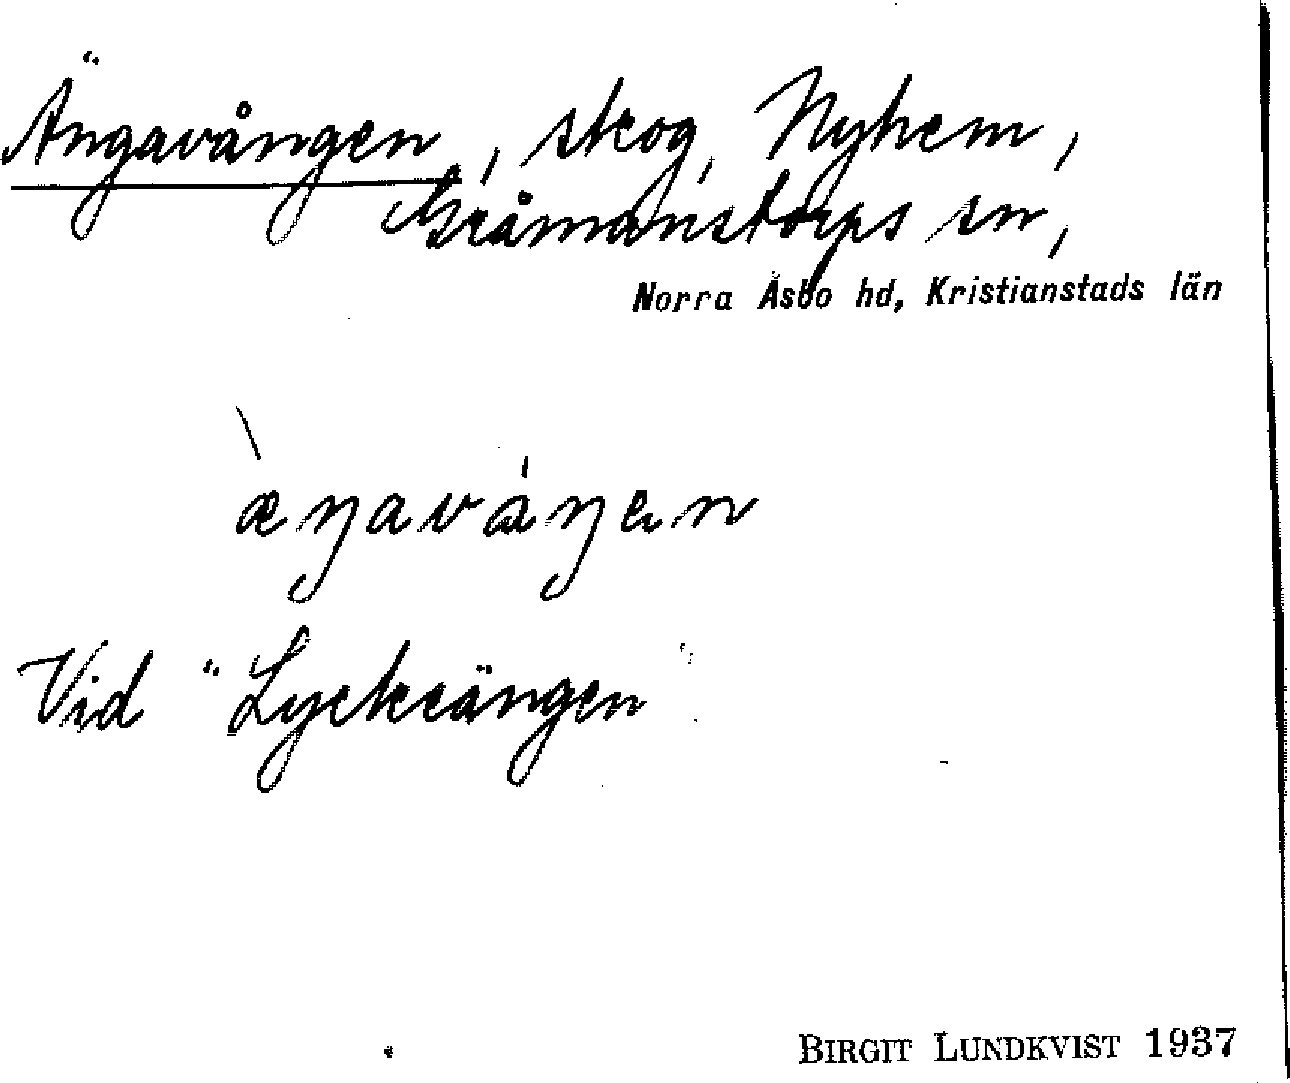 Ängavången, skog, Nyhem,
Gråmanstorps sn,
Norra Åsbo hd, Kristianstads län
æŋavåŋen
Vid "Lyckeängen"
BIRGIT LUNDKVIST 1937